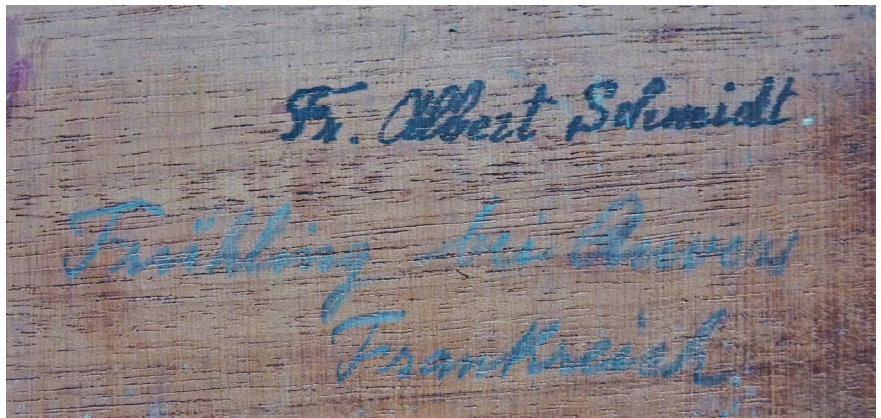 Fr. Albert Schmidt.
Frühling bei Auvers
Frankreich.